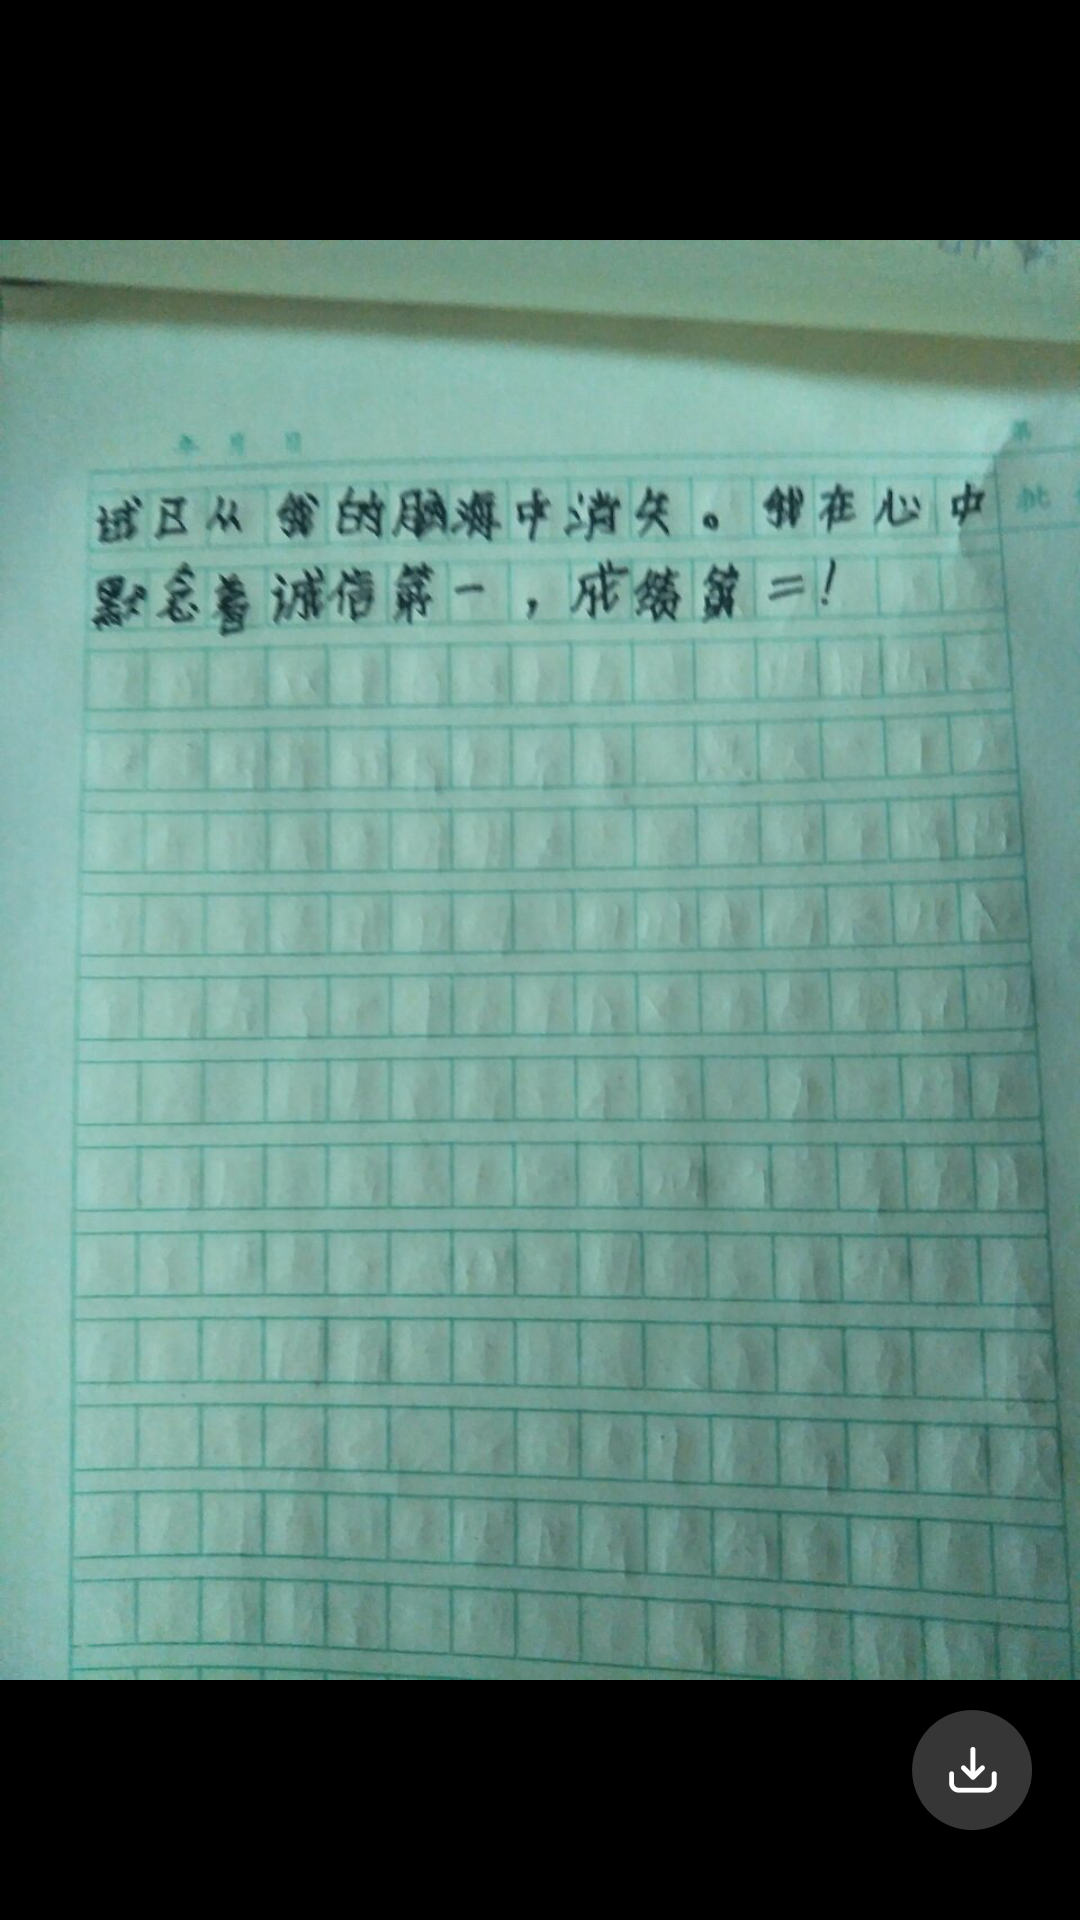 年 月 日
第
批
试已从我的脑海中消失。我在心中
默念着诚信第一，成绩第二！